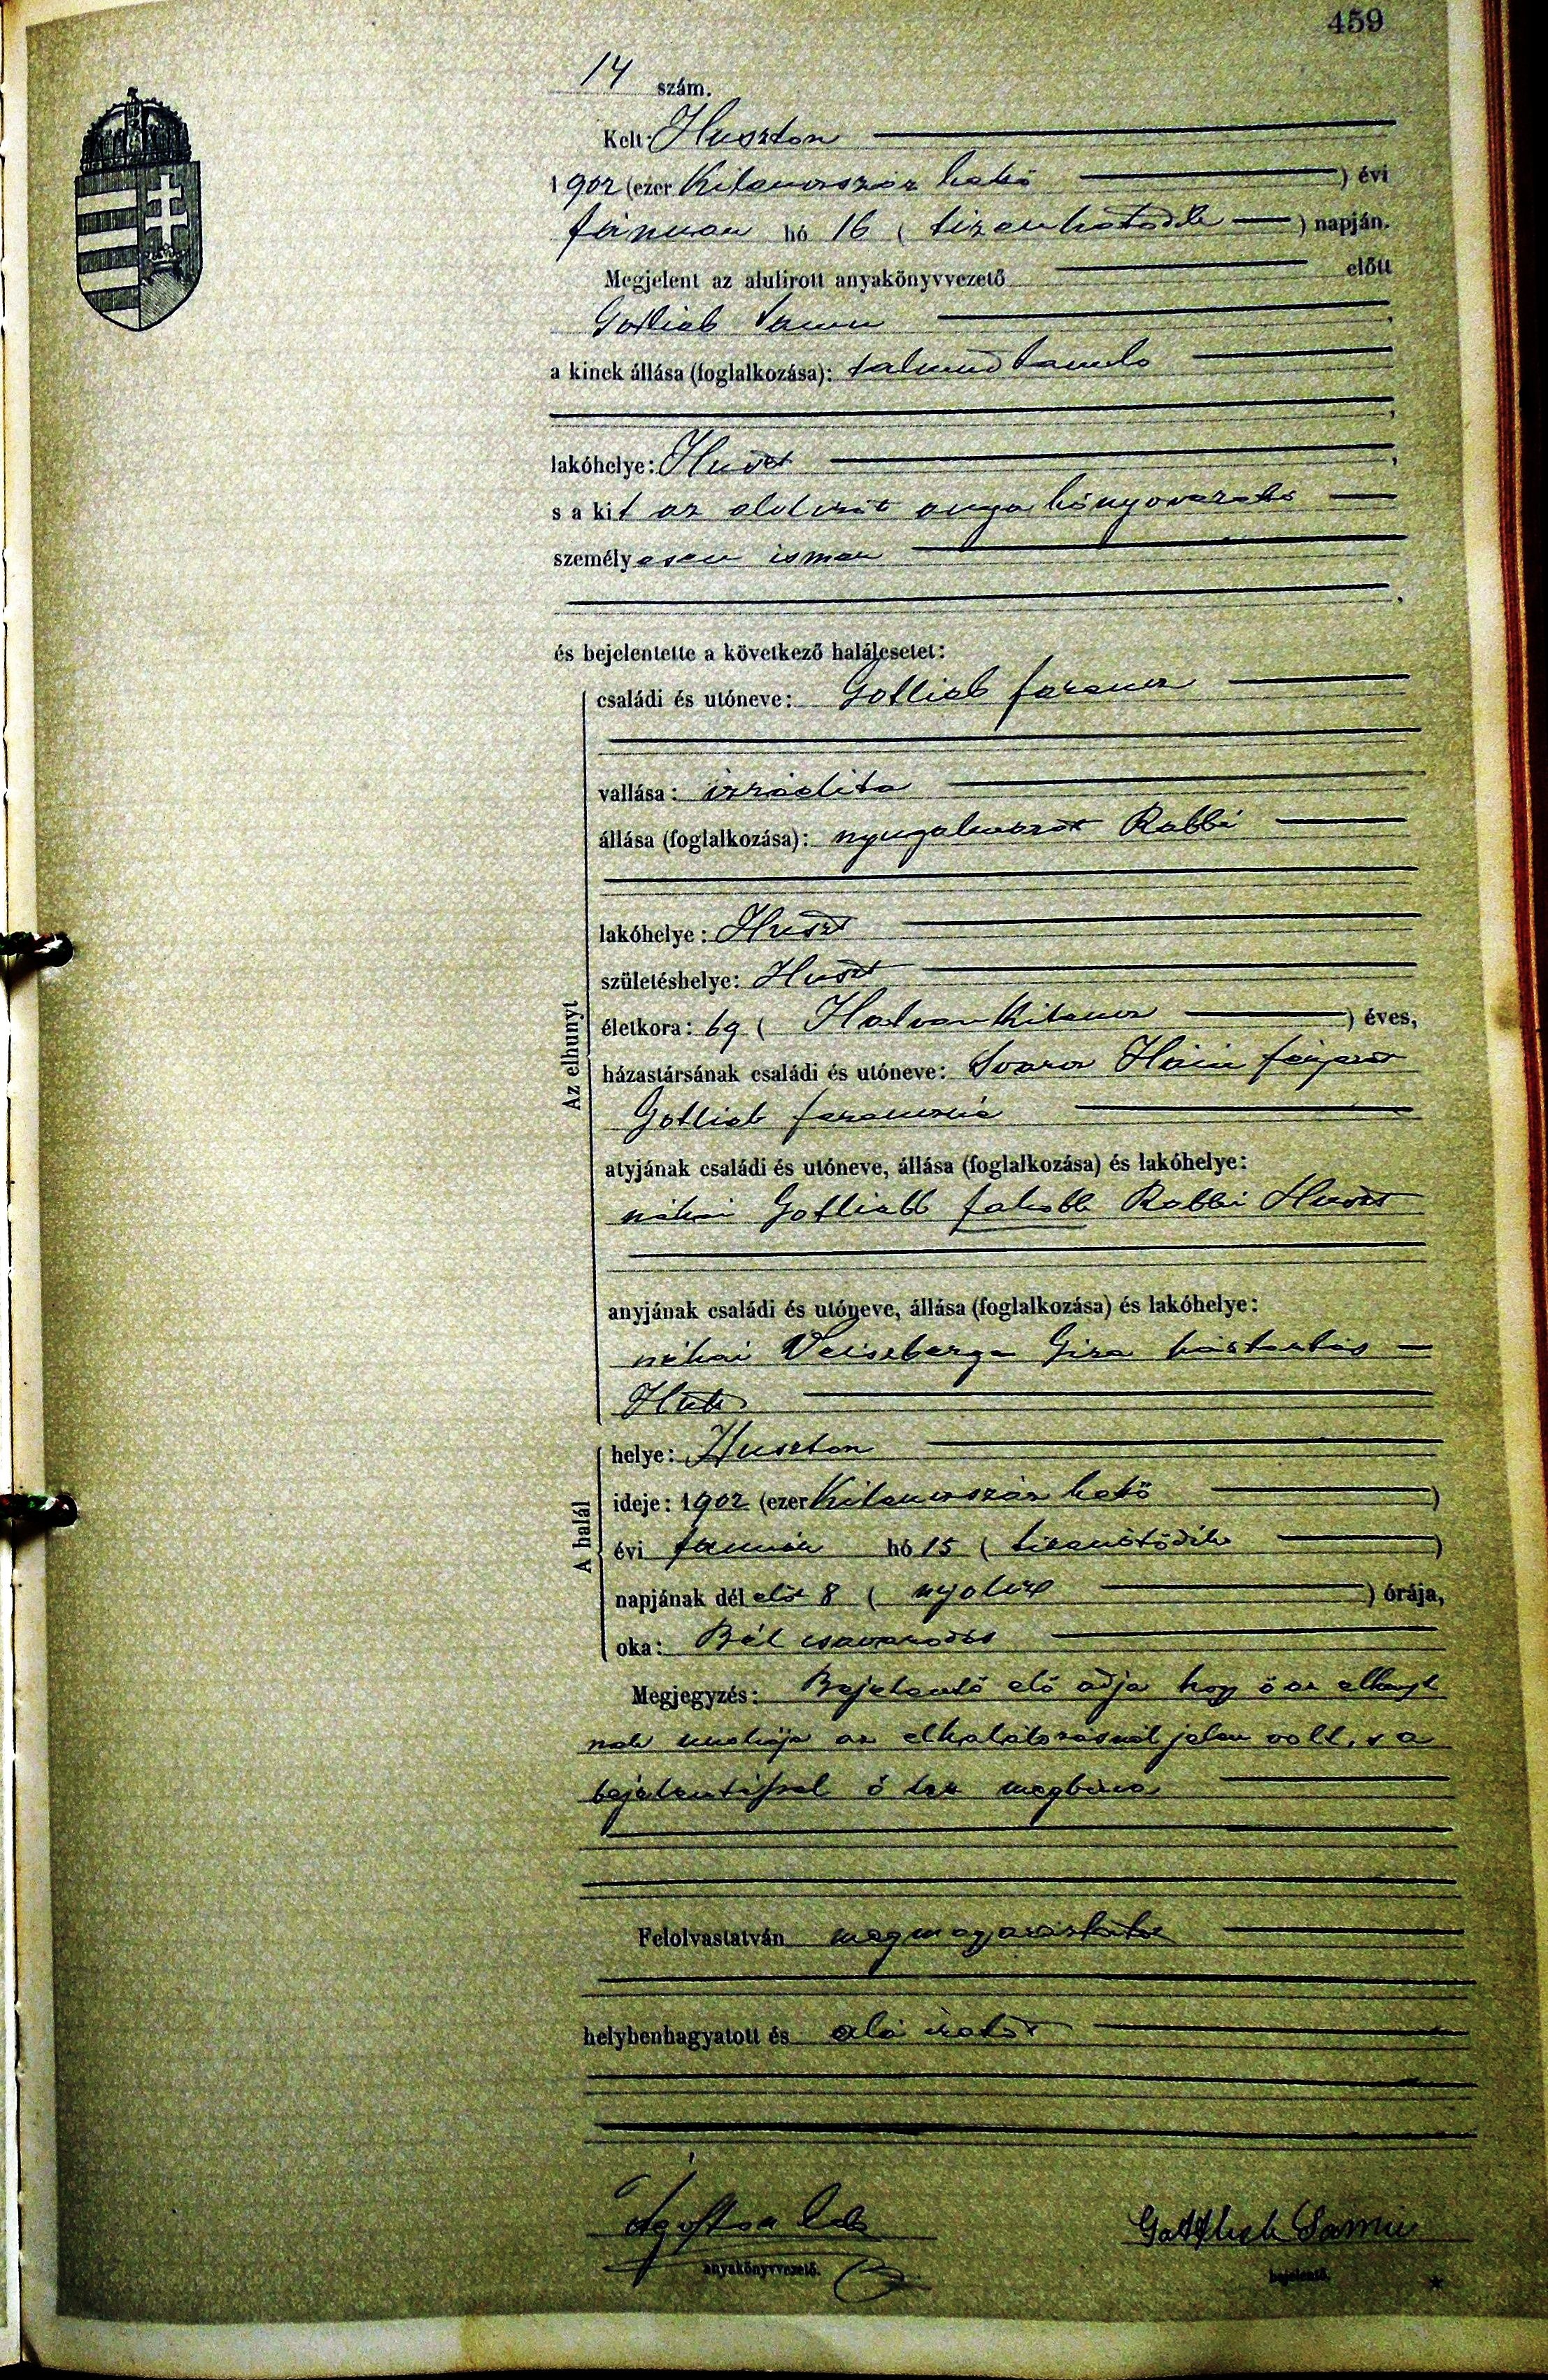 459
14 szám.
Kelt: Huszton
1902 (ezer Kilenczszáz kettő) évi
Január hó 16 (tizenhatodik) napján.
Megjelent az alulirott anyakönyvvezető előtt
Gotlieb Samu,
a kinek állása (foglalkozása): talmud tanuló
lakóhelye: Huszt,
s a kit az alulirót anyakönyvvezető
személyesen ismer,
és bejelentette a következő halálesetet:
Az elhunyt
családi és utóneve: Gotlieb Ferencz
vallása: izraelita
állása (foglalkozása): nyugalmazot Rabbi
lakóhelye: Huszt
születéshelye: Huszt
életkora: 69 (Hatvankilencz) éves,
házastársának családi és utóneve: Háni
Gotlieb Ferenczné
atyjának családi és utóneve, állása (foglalkozása) és lakóhelye:
néhai Gotliebb Jakobb Rabbi Huszt
anyjának családi és utóneve, állása (foglalkozása) és lakóhelye:
néhai Veiszberger Giza háztartás
A halál
helye: Huszton
ideje: 1902 (ezer Kilenczszáz kettő)
évi Január hó 15 (tizenötödik)
napjának dél előt 8 (nyolcz) órája,
oka: Bél csavarodás
Megjegyzés: Bejelentő elő adja hogy ő az elhunyt
nak unokája az elhalálozásnál jelen volt, s a
bejelentéssel ő lett megbizva
Felolvastatván megmagyaráztatot
helybenhagyatott és alá iratot
Gottlieb Samu
anyakönyvvezető. bejelentő.